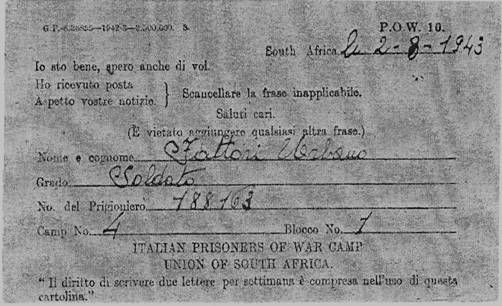 G.P.-S.26835--1942-3--2,500,000. S.
P.O.W. 10.
South Africa li 2-8-1943
Io sto bene, spero anche di voi.
Ho ricevuto posta
Aspetto vostre notizie. } Scancellare la frase inapplicabile.
Saluti cari.
(E vietato aggiungere qualsiasi altra frase.)
Nome e cognome Fattori Urbano
Grado Soldato
No. del Prigioniero 188163
Camp No. 4 Blocco No. 1
ITALIAN PRISONERS OF WAR CAMP
UNION OF SOUTH AFRICA.
" Il diritto di scrivere due lettere per settimana è compresa nell'uso di questa
cartolina."